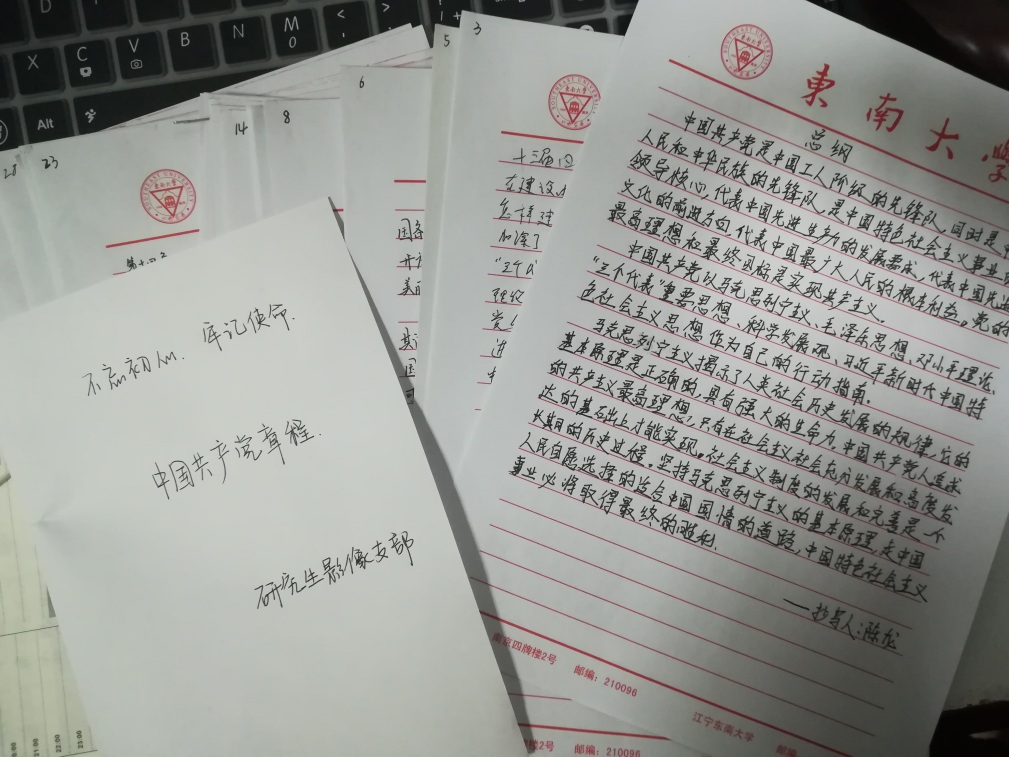 X
C
V
B
N
M
0
<
>
Alt
28
23
14
8
6
5
3
不忘初心 牢记使命.
中国共产党章程.
研究生影像支部
十三届四
在建设
怎样建
加深了
"三个代
SOUTHEAST UNIVERSITY
東南大學
总纲
中国共产党是中国工人阶级的先锋队,同时是中
人民和中华民族的先锋队,是中国特色社会主义事业的
领导核心,代表中国先进生产力的发展要求,代表中国先进
文化的前进方向,代表中国最广大人民的根本利益。党的
最高理想和最终目标是实现共产主义。
中国共产党以马克思列宁主义、毛泽东思想、邓小平理论、
"三个代表"重要思想、科学发展观、习近平新时代中国特
色社会主义思想作为自己的行动指南。
马克思列宁主义揭示了人类社会历史发展的规律,它的
基本原理是正确的,具有强大的生命力.中国共产党人追求
的共产主义最高理想,只有在社会主义社会充分发展和高度发
达的基础上才能实现。社会主义制度的发展和完善是一个
长期的历史过程。坚持马克思列宁主义的基本原理,走中国
人民自愿选择的适合中国国情的道路,中国特色社会主义
事业必将取得最终的胜利.
——抄写人:陈龙
南京四牌楼2号 邮编:210096
江宁东南大学 邮编
楼2号 邮编:210096
21:00
22:00
23:00